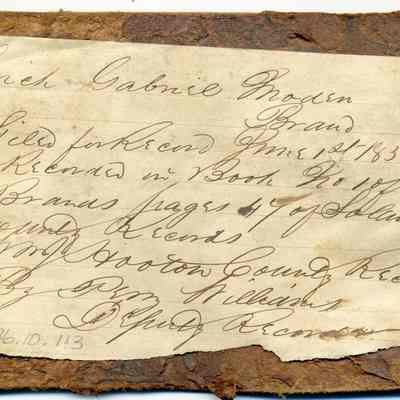 Gabriel Moden
Brand
Filed for Record June 1st 185
Recorded in Book No 1 of
Brands pages 47 of Solan
County Records
Hooton County Rec
By Williams
Deputy Recorder
96.10.113